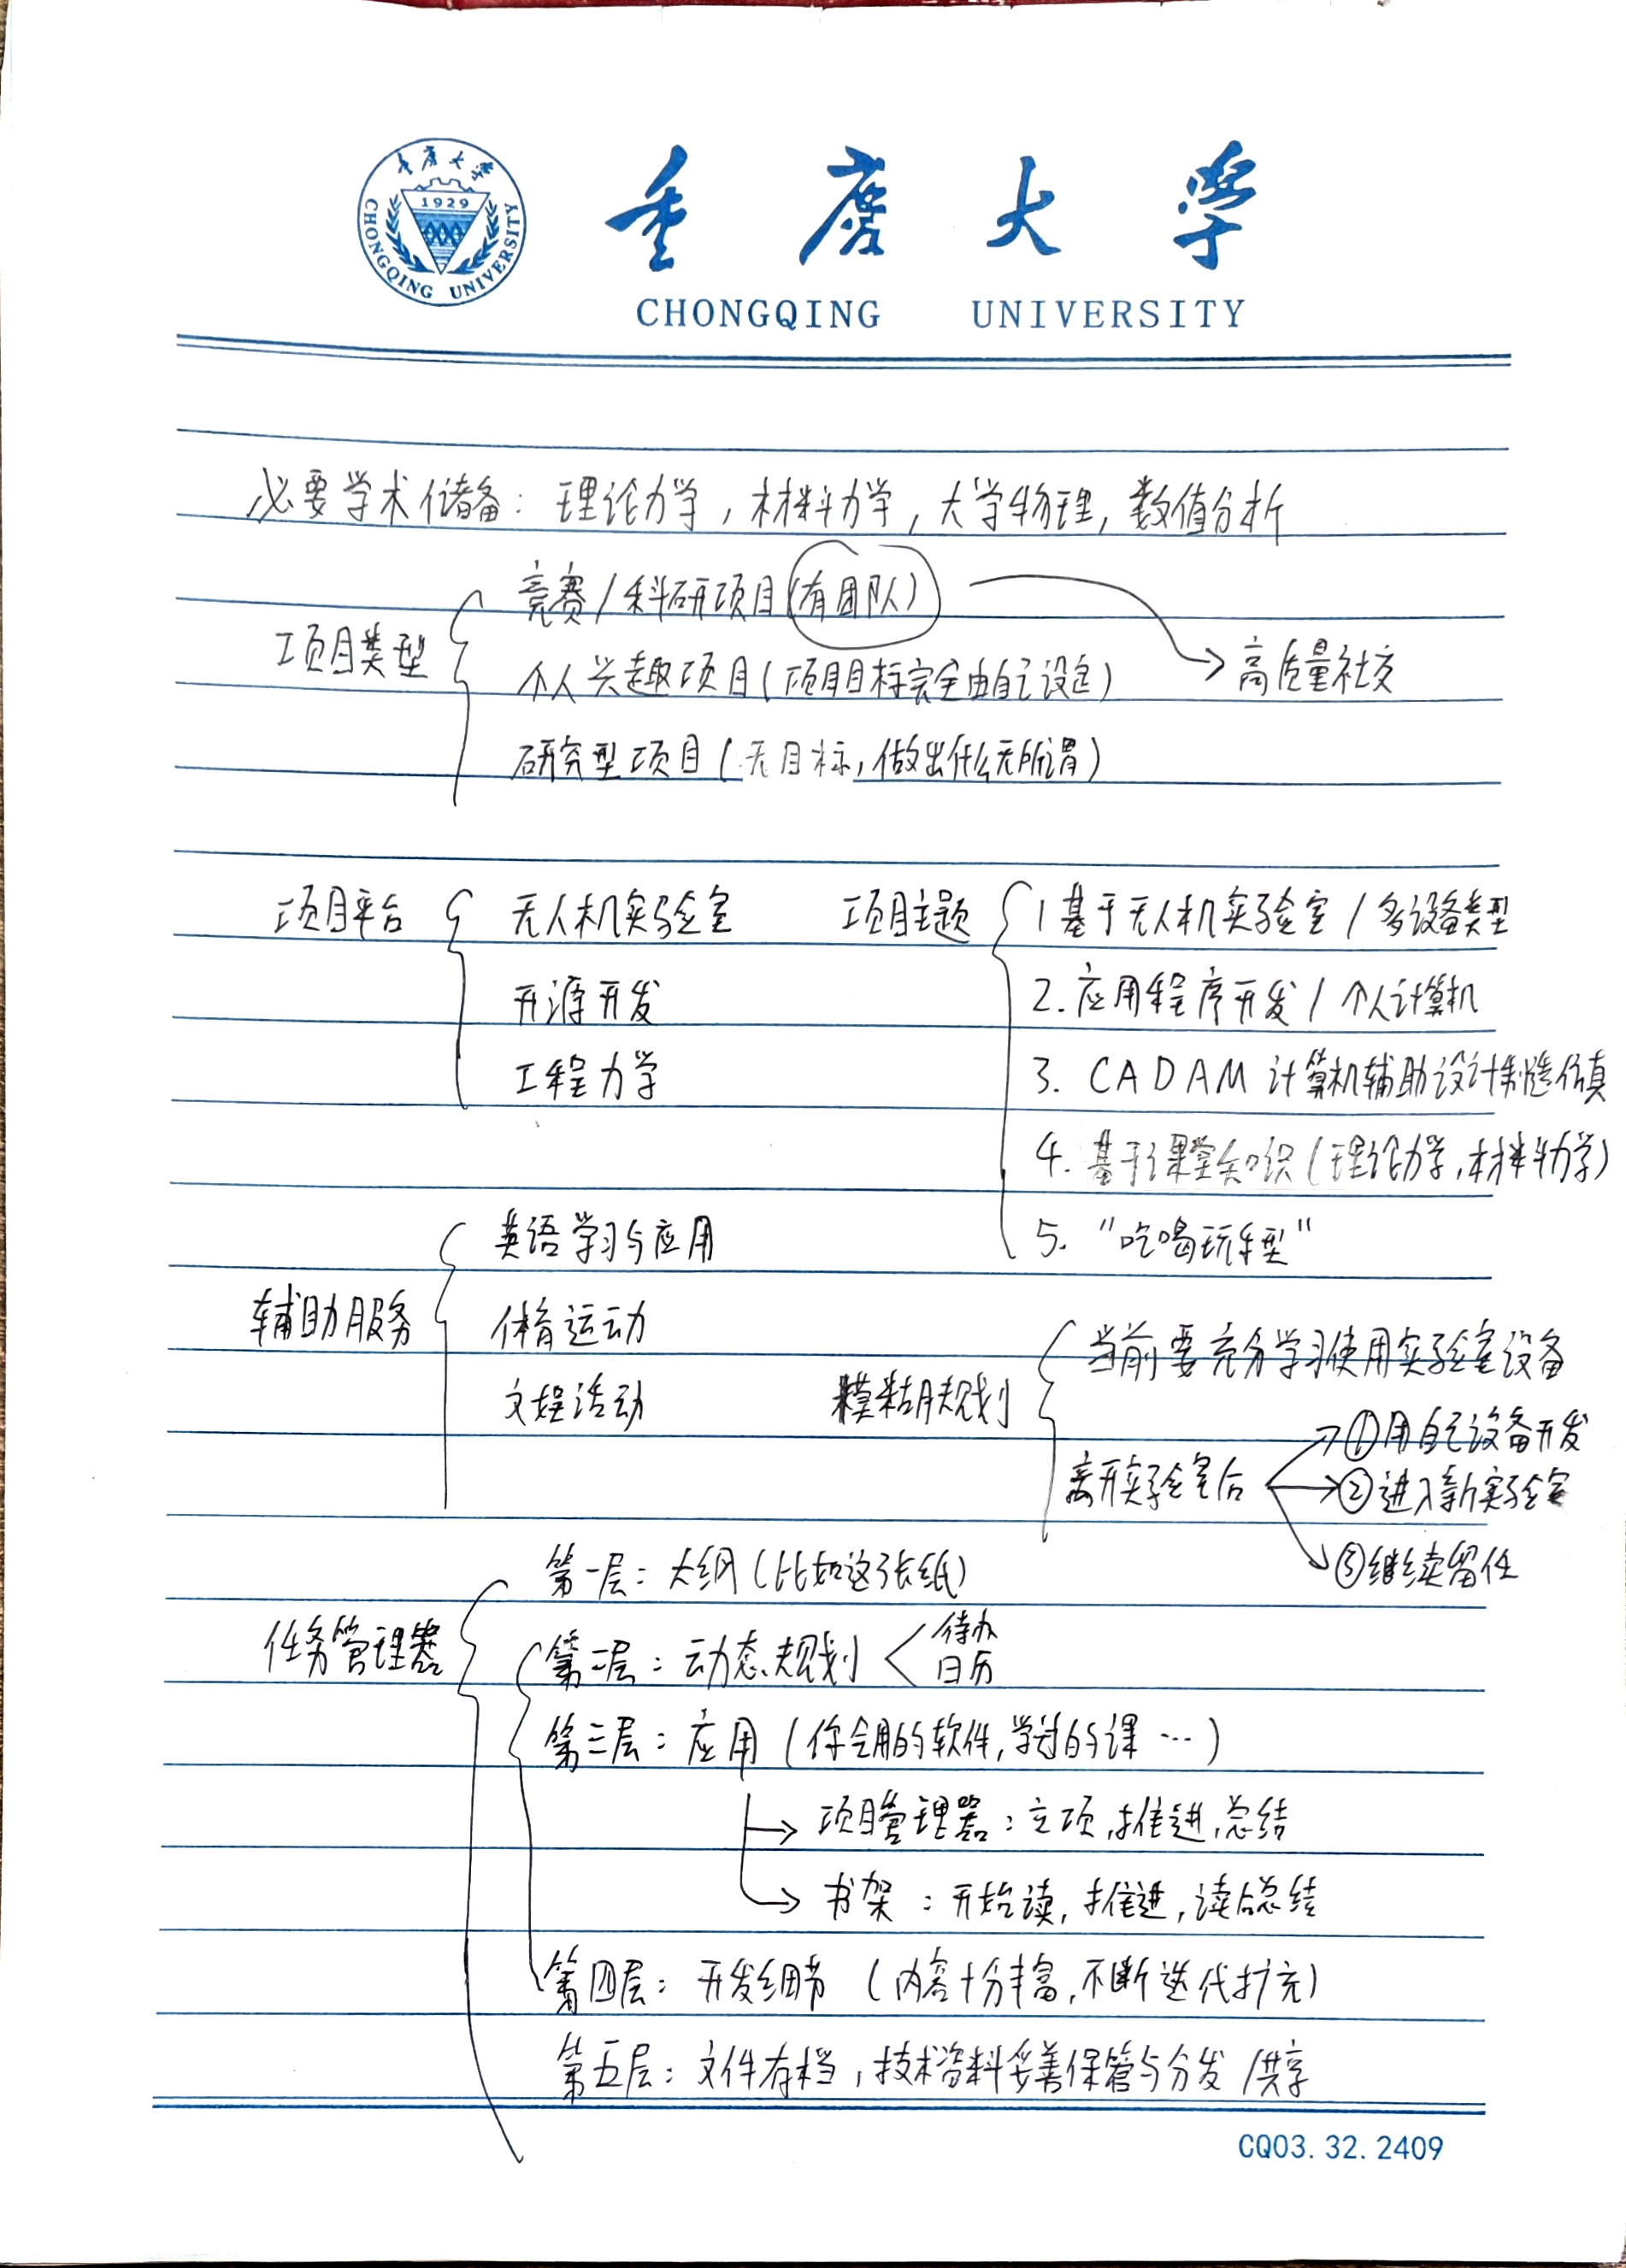 重庆大学
1929
CHONGQING UNIVERSITY
重庆大学
CHONGQING UNIVERSITY
必要学术储备：理论力学，材料力学，大学物理，数值分析
项目类型
竞赛/科研项目（有团队）
高质量社交
个人兴趣项目（项目目标完全由自己设定）
研究型项目（无目标，做出什么无所谓）
项目平台
无人机实验室
开源开发
工程力学
项目主题
1 基于无人机实验室/多设备类型
2. 应用程序开发/个人计算机
3. CADAM 计算机辅助设计制造仿真
4. 基于课堂知识（理论力学，材料力学）
5. “吃喝玩乐型”
辅助服务
英语学习与应用
体育运动
文娱活动
模糊规划
当前要充分学习使用实验室设备
离开实验室后
①用自己设备开发
②进入新实验室
③继续留任
任务管理器
第一层：大纲（比如这张纸）
第二层：动态规划
待办
日历
第三层：应用（你会用的软件，学过的课…）
项目管理器：立项，推进，总结
书架：开始读，推进，读后总结
第四层：开发细节（内容十分丰富，不断迭代扩充）
第五层：文件存档，技术资料妥善保管与分发/共享
CQ03.32.2409